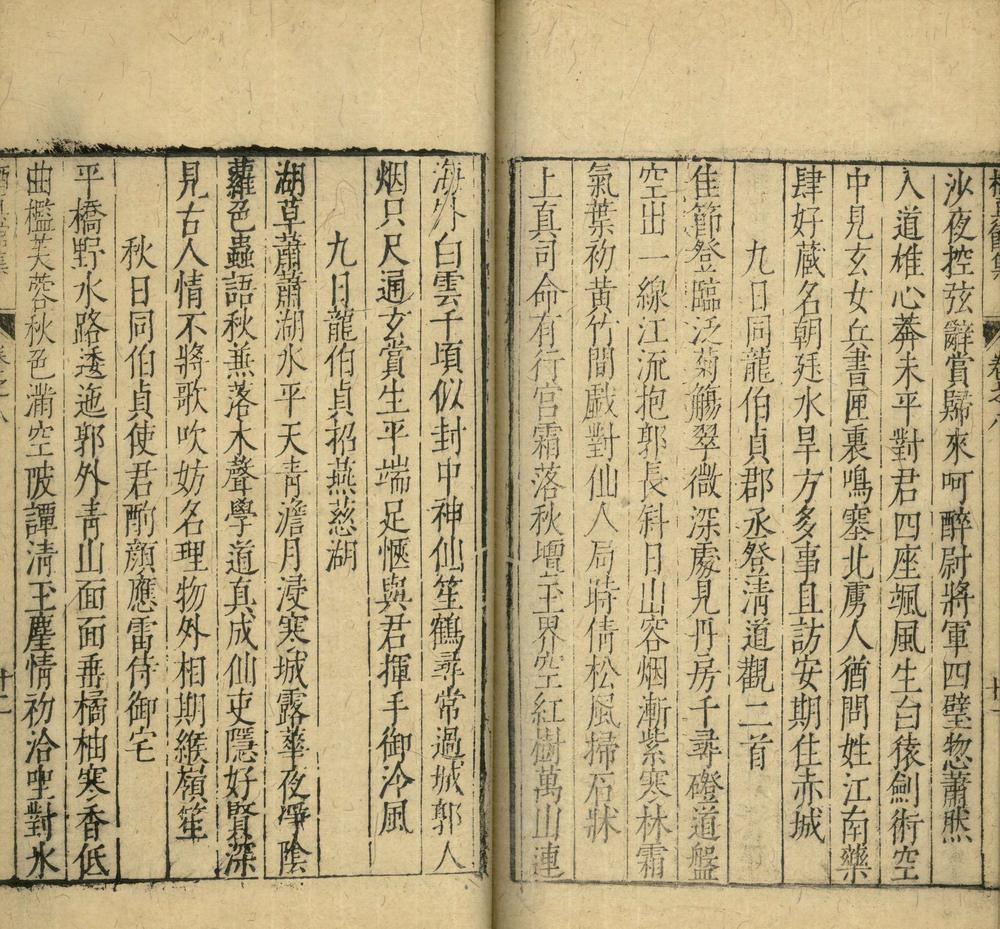 卷之八
沙夜控弦辭賞歸來呵醉尉將軍四壁惣蕭然
入道雄心莾未平對君四座颯風生白猿劍術空
中見玄女丘書匣裏鳴塞北虜人猶問姓江南藥
肆好蔵名朝廷水旱方多事且訪安期住赤城
九日同龍伯貞郡丞登清道觀二首
佳節登臨泛菊觴翠微深處見丹房千尋磴道盤
空出一線江流抱郭長斜日山容烟漸紫寒林霜
氣葉初黄竹間戱對仙人局時倩松風掃石牀
上真司命有行宫霜落秋壇玉界空紅樹萬山連
海外白雲千頃似封中神仙笙鶴尋常過城郭人
烟只尺通玄賞生平端足愜與君揮手御泠風
九日龍伯貞招燕慈湖
湖草蕭蕭湖水平天青澹月浸寒城露華夜凈陰
蘿色蟲語秋兼落木聲學道真成仙吏隱好賢深
見古人情不將歌吹妨名理物外相期緱嶺笙
秋日同伯貞使君酌顔應雷侍御宅
平橋野水路逶迤郭外青山面面垂橘柚寒香低
曲檻芙蓉秋色滿空陂譚清玉麈情初洽坐對氷
卷之八
十二